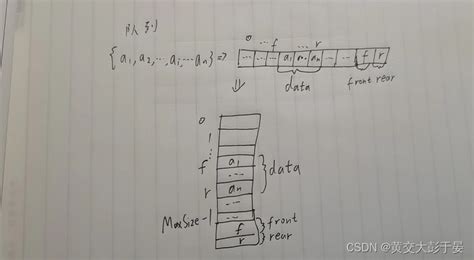 队列
0 … f r
{a₁,a₂,…,aᵢ,…aₙ} => … a₁ … aₙ … f r
data front rear
0
1
⋮
f a₁
… data
r aₙ
…
MaxSize-1 …
f front
r rear
CSDN @黄交大彭于晏